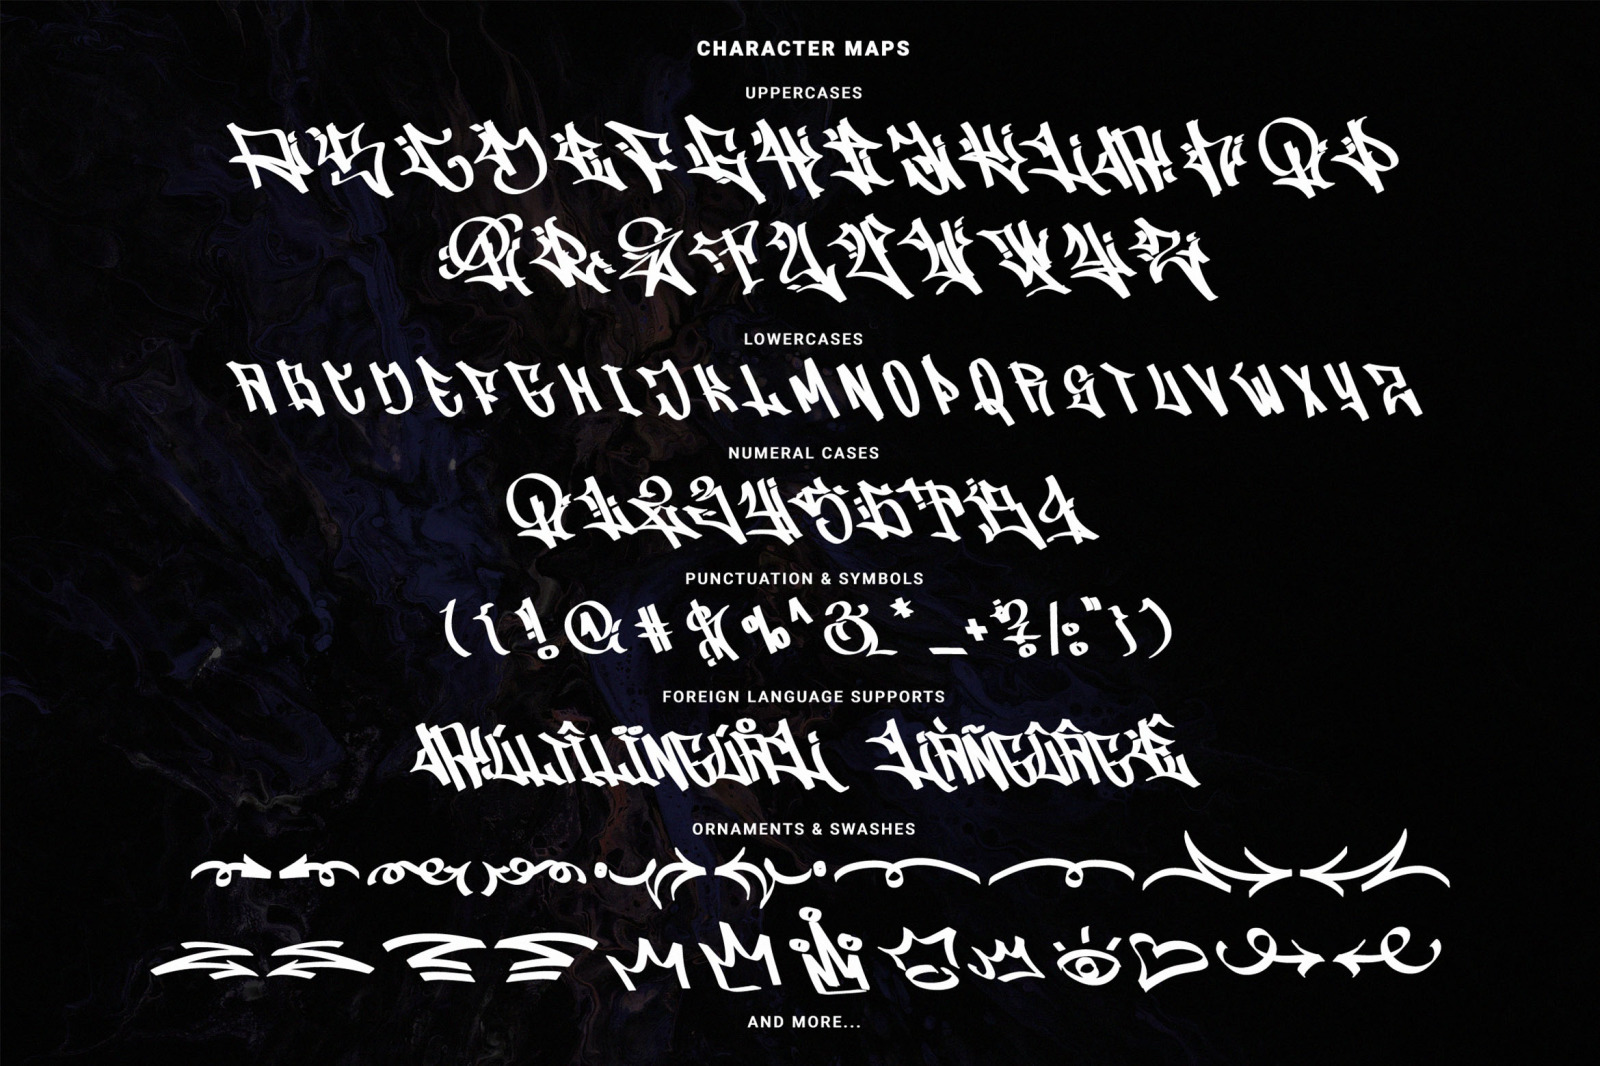 CHARACTER MAPS
UPPERCASES
A B C D E F G H I J K L M N O P
Q R S T U V W X Y Z
LOWERCASES
A B C D E F G H I J K L M N O P Q R S T U V W X Y Z
NUMERAL CASES
0 1 2 3 4 5 6 7 8 9
PUNCTUATION & SYMBOLS
( { ! @ # $ % ^ & * _ + ? / : " } )
FOREIGN LANGUAGE SUPPORTS
MÚLTÎLÏNGÚÅL LÀÑGÛÂGÊ
ORNAMENTS & SWASHES
AND MORE...